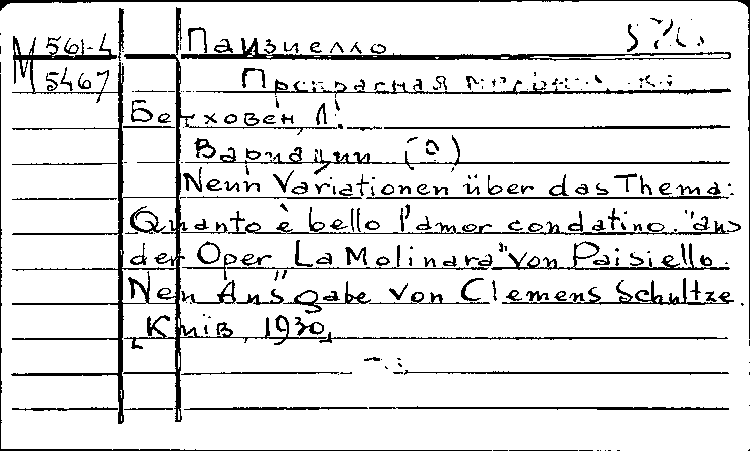 М 561-4 Паизиелло
М 5467 Прекрасная
Бетховен, Л.
Вариации (9)
Neun Variationen über das Thema:
Quanto è bello l'amor condatino. "aus
der Oper La Molinara" von Paisiello.
Neu Ausgabe von Clemens Schultze.
[Київ, 1930]